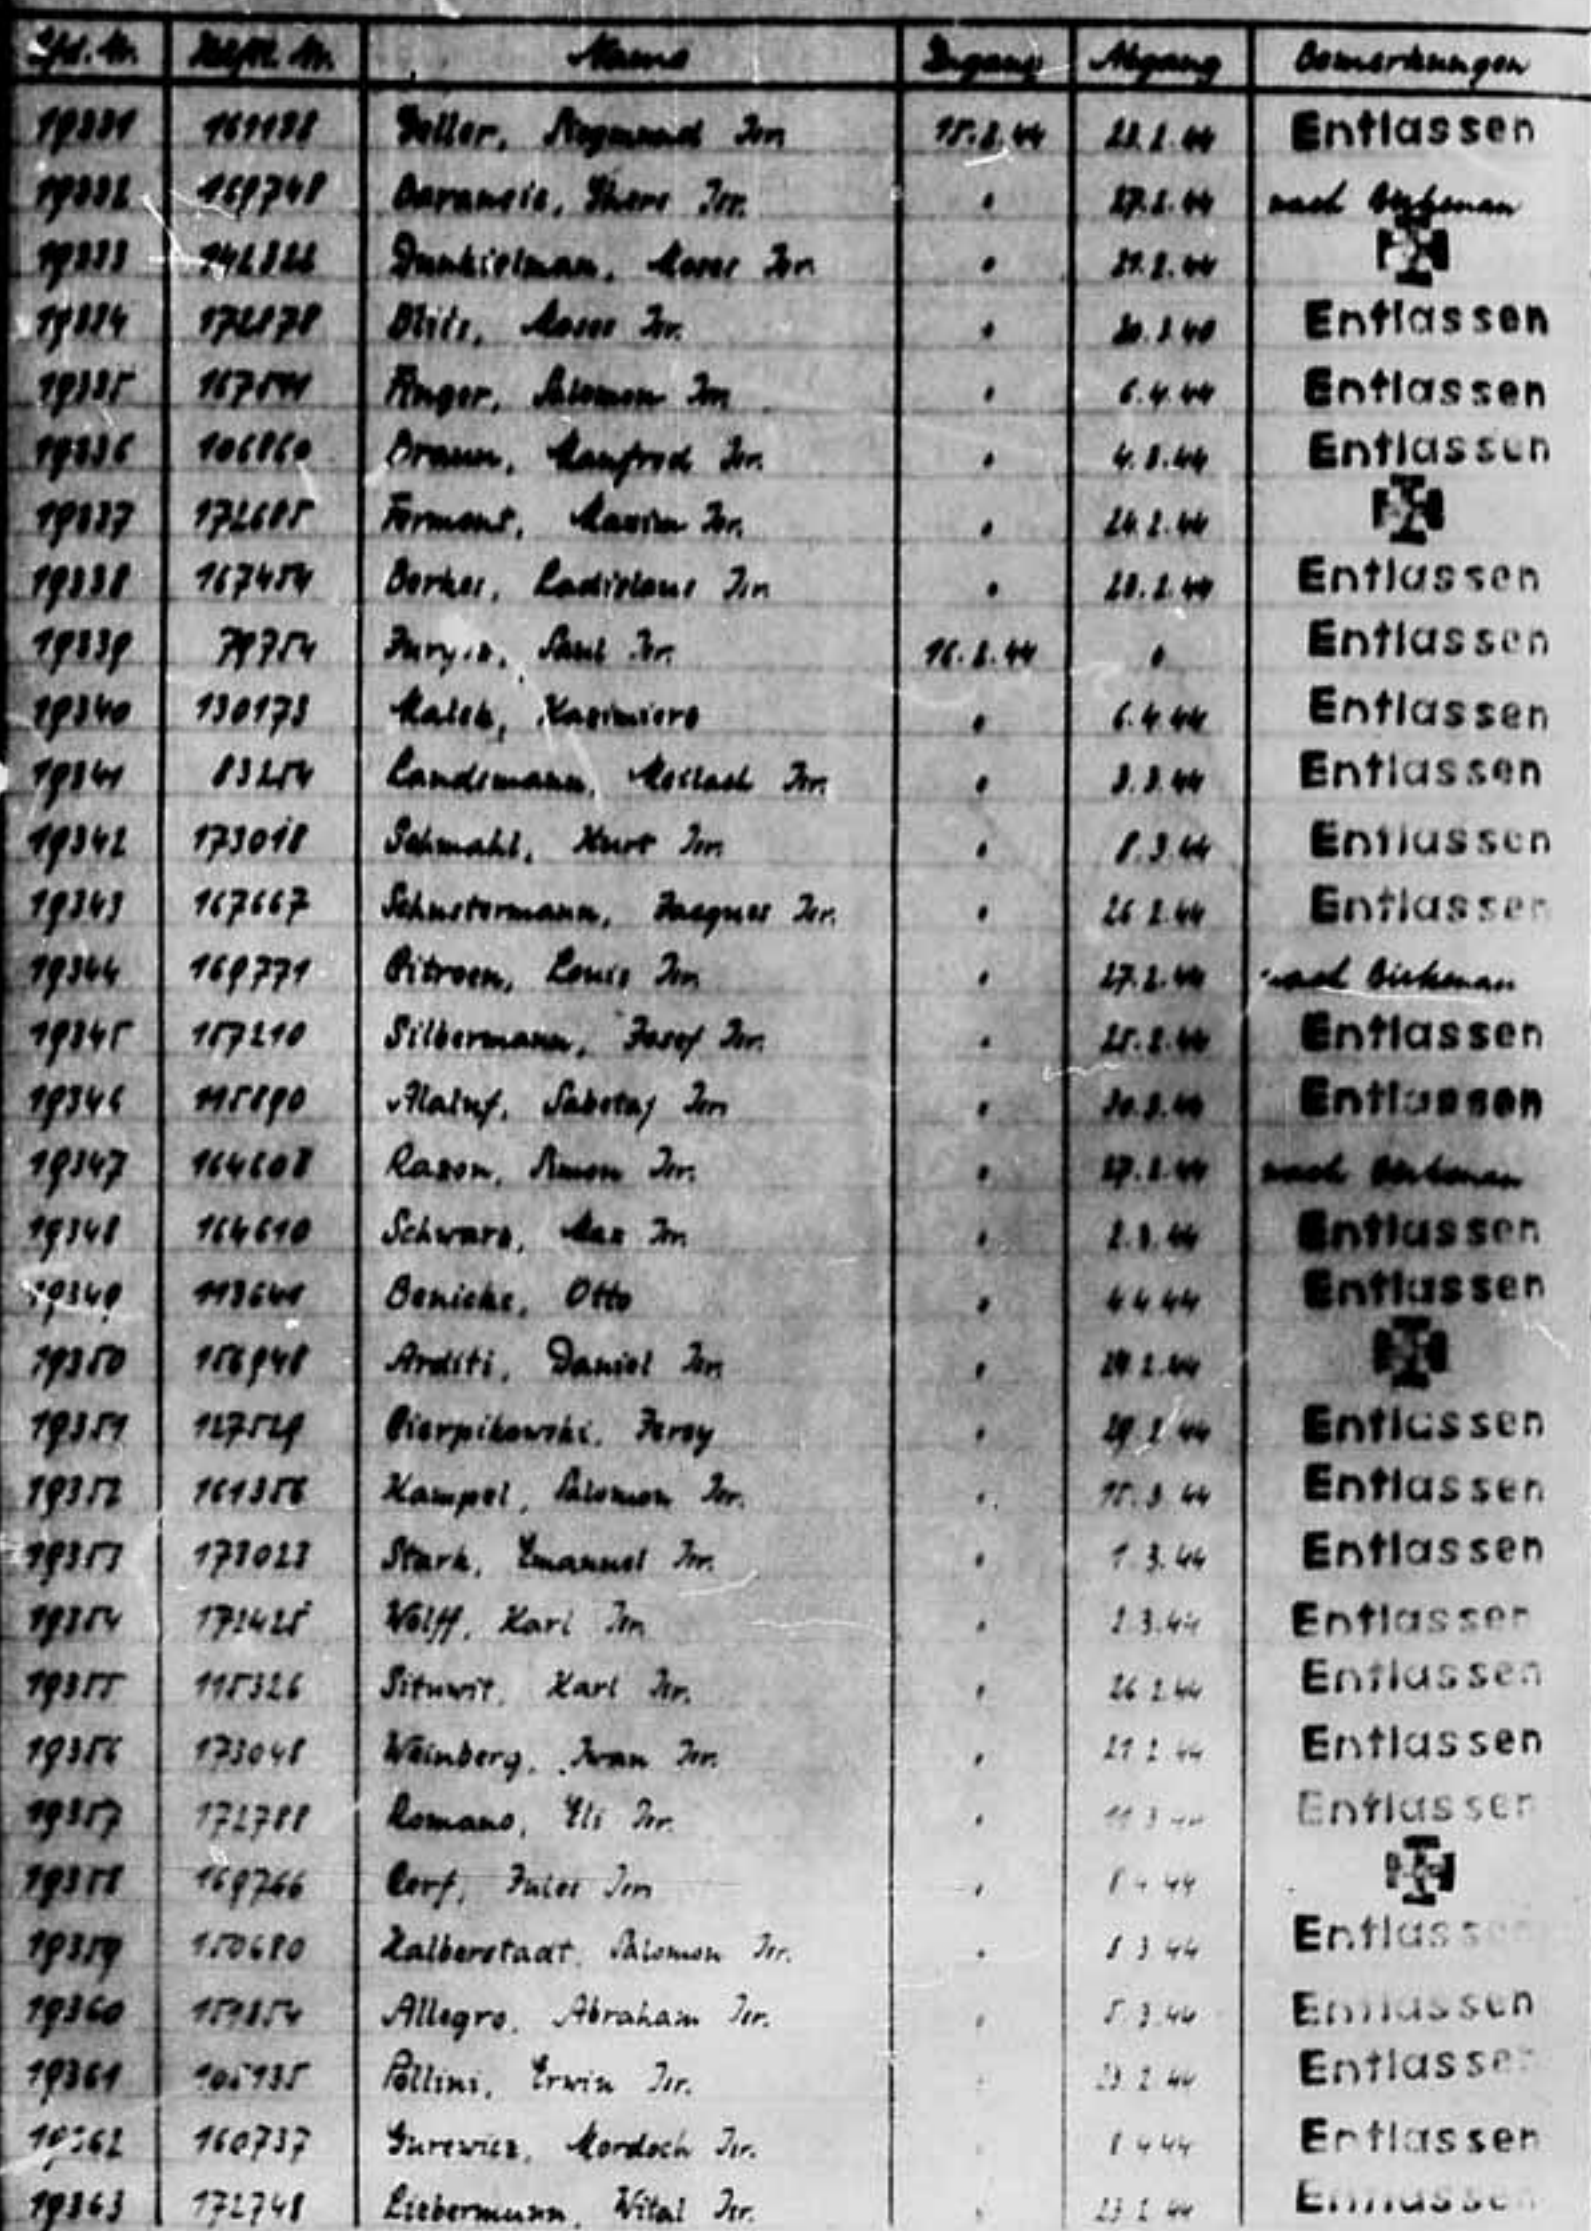 Lfd. Nr. Häftl. Nr. Name Zugang Abgang Bemerkungen
19331 Isr. 15.2.44 23.2.44 Entlassen
19332 169748 Isr. " 27.2.44 nach Birkenau
19333 Dunkielman, Moses Isr. "
19334 Moses Isr. " Entlassen
19335 Unger, Salomon Isr. " 6.4.44 Entlassen
19336 106860 Braun, Manfred Isr. " Entlassen
19337 172685 Formont, Maxim Isr. "
19338 167454 Ladislaus Isr. " Entlassen
19339 79754 Isr. 16.2.44 " Entlassen
19340 130173 Malek, Kazimierz " 6.4.44 Entlassen
19341 83254 Landsmann, Isr. " 3.3.44 Entlassen
19342 173018 Schmahl, Kurt Isr. " 8.3.44 Entlassen
19343 167667 Schustermann, Jacques Isr. " 26.2.44 Entlassen
19344 169771 Citroen, Louis Isr. " 27.2.44 nach Birkenau
19345 157210 Silbermann, Josef Isr. " 25.2.44 Entlassen
19346 115890 Alaluf, Sabetaj Isr. " Entlassen
19347 164608 Razon, Simon Isr. " 27.2.44 nach Birkenau
19348 164610 Schwarz, Max Isr. " 2.3.44 Entlassen
19349 113641 Benicke, Otto " 4.4.44 Entlassen
19350 156948 Arditi, Daniel Isr. "
19351 127529 Cierpikowski, Jerzy " 29.2.44 Entlassen
19352 161356 Kampel, Salomon Isr. " 15.3.44 Entlassen
19353 173023 Stark, Emanuel Isr. " 1.3.44 Entlassen
19354 172425 Wolff, Karl Isr. " 2.3.44 Entlassen
19355 115326 Karl Isr. " 26.2.44 Entlassen
19356 173048 Weinberg, Iwan Isr. " 21.2.44 Entlassen
19357 172788 Romano, Eli Isr. " 11.3.44 Entlassen
19358 169766 Cerf, Jules Isr. "
19359 150680 Halberstadt, Salomon Isr. " 8.3.44 Entlassen
19360 Allegro, Abraham Isr. " 5.3.44 Entlassen
19361 Pollini, Erwin Isr. " 23.2.44 Entlassen
19362 160737 Gurewicz, Mordoch Isr. " 8.4.44 Entlassen
19363 172748 Liebermann, Wital Isr. " 23.2.44 Entlassen